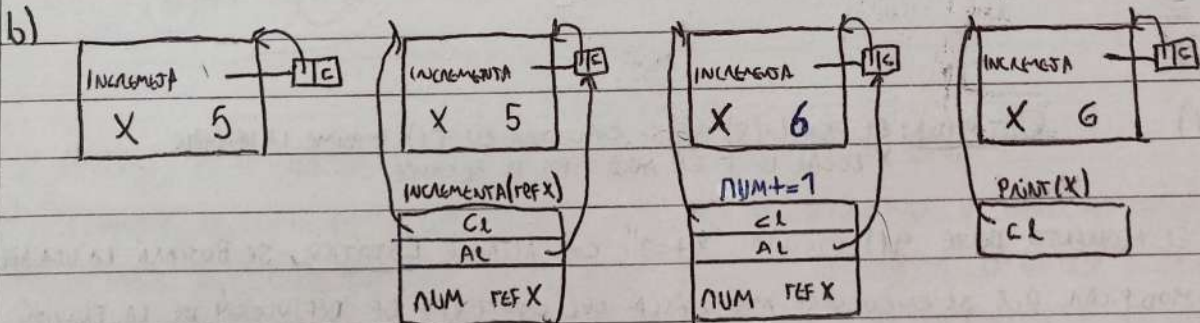 b)
INCREMENTA C
X 5
INCREMENTA C
X 5
INCREMENTA(ref X)
CL
AL
NUM ref X
INCREMENTA C
X 6
NUM+=1
CL
AL
NUM ref X
INCREMENTA C
X 6
PRINT(X)
CL